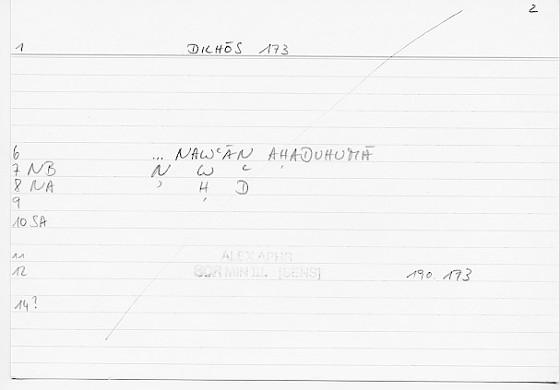 2
1 DICHŌS 173
6 ... NAWʿĀN AḤADUHUMĀ
7 NB N W ʿ
8 NA ʾ Ḥ D
9
10 SA
11 ALEX APHR
12 BOR MIN III. [SENS] 190. 173
14?